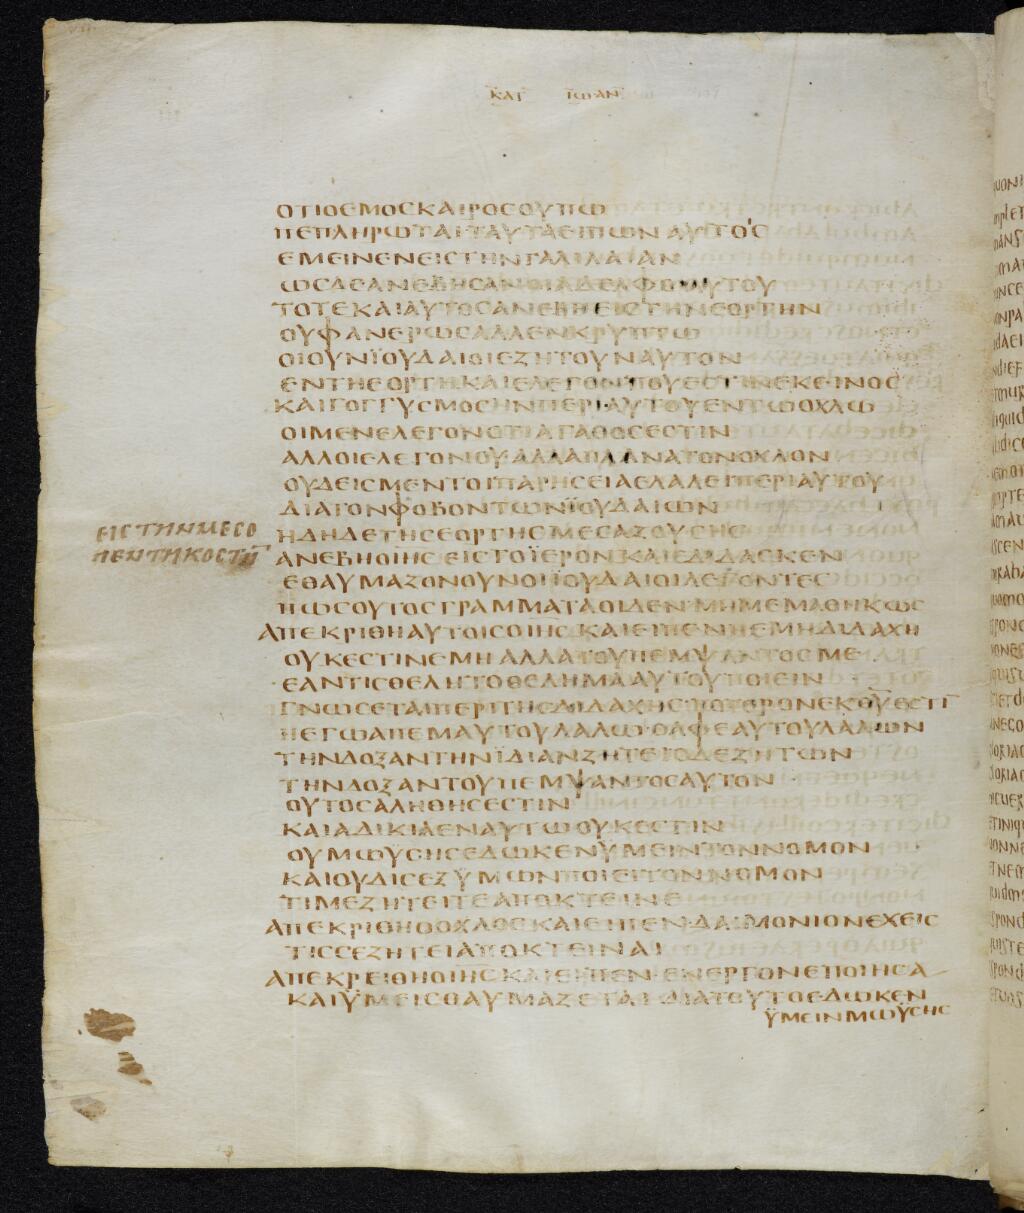 ΚΑΤ ΙΩΑΝ
ΟΤΙΟΕΜΟΣΚΑΙΡΟΣΟΥΠΩ
ΠΕΠΛΗΡΩΤΑΙΤΑΥΤΑΕΙΠΩΝ ΑΥΤΟΣ
ΕΜΕΙΝΕΝΕΙΣΤΗΝΓΑΛΙΛΑΙΑΝ
ΩΣΔΕΑΝΕΒΗΣΑΝΟΙΑΔΕΛΦΟΙΑΥΤΟΥ
ΤΟΤΕΚΑΙΑΥΤΟΣΑΝΕΒΗΕΙΣΤΗΝΕΟΡΤΗΝ
ΟΥΦΑΝΕΡΩΣΑΛΛΑΕΝΚΡΥΠΤΩ
ΟΙΟΥΝΪΟΥΔΑΙΟΙΕΖΗΤΟΥΝΑΥΤΟΝ
ΕΝΤΗΕΟΡΤΗΚΑΙΕΛΕΓΟΝΠΟΥΕΣΤΙΝΕΚΕΙΝΟΣ
ΚΑΙΓΟΓΓΥΣΜΟΣΗΝΠΕΡΙΑΥΤΟΥΕΝΤΩΟΧΛΩ
ΟΙΜΕΝΕΛΕΓΟΝΟΤΙΑΓΑΘΟΣΕΣΤΙΝ
ΑΛΛΟΙΕΛΕΓΟΝΟΥΑΛΛΑΠΛΑΝΑΤΟΝΟΧΛΟΝ
ΟΥΔΕΙΣΜΕΝΤΟΙΠΑΡΗΣΕΙΑΕΛΑΛΕΙΠΕΡΙΑΥΤΟΥ
ΔΙΑΤΟΝΦΟΒΟΝΤΩΝΪΟΥΔΑΙΩΝ
ΕΙΣΤΗΝΜΕΣΟ
ΠΕΝΤΗΚΟΣΤΗ̅
ΗΔΗΔΕΤΗΣΕΟΡΤΗΣΜΕΣΑΖΟΥΣΗΣ
ΑΝΕΒΗΟΙΗΣ ΕΙΣΤΟΪΕΡΟΝΚΑΙΕΔΙΔΑΣΚΕΝ
ΕΘΑΥΜΑΖΟΝΟΥΝΟΙΪΟΥΔΑΙΟΙΛΕΓΟΝΤΕΣ
ΠΩΣΟΥΤΟΣΓΡΑΜΜΑΤΑΟΙΔΕΝΜΗΜΕΜΑΘΗΚΩΣ
ΑΠΕΚΡΙΘΗΑΥΤΟΙΣΟΙΗΣ ΚΑΙΕΙΠΕΝΗΕΜΗΔΙΔΑΧΗ
ΟΥΚΕΣΤΙΝΕΜΗΑΛΛΑΤΟΥΠΕΜΨΑΝΤΟΣΜΕ
ΕΑΝΤΙΣΘΕΛΗΤΟΘΕΛΗΜΑΑΥΤΟΥΠΟΙΕΙΝ
ΓΝΩΣΕΤΑΙΠΕΡΙΤΗΣΔΙΔΑΧΗΣΠΟΤΕΡΟΝΕΚΘ̅Υ̅ΕΣΤΙ̅
ΗΕΓΩΑΠΕΜΑΥΤΟΥΛΑΛΩΟΑΦΕΑΥΤΟΥΛΑΛΩΝ
ΤΗΝΔΟΞΑΝΤΗΝΪΔΙΑΝΖΗΤΕΙΟΔΕΖΗΤΩΝ
ΤΗΝΔΟΞΑΝΤΟΥΠΕΜΨΑΝΤΟΣΑΥΤΟΝ
ΟΥΤΟΣΑΛΗΘΗΣΕΣΤΙΝ
ΚΑΙΑΔΙΚΙΑΕΝΑΥΤΩΟΥΚΕΣΤΙΝ
ΟΥΜΩΥΣΗΣΕΔΩΚΕΝΥΜΕΙΝΤΟΝΝΟΜΟΝ
ΚΑΙΟΥΔΙΣΕΞΥΜΩΝΠΟΙΕΙΤΟΝΝΟΜΟΝ
ΤΙΜΕΖΗΤΕΙΤΕΑΠΟΚΤΕΙΝΕ
ΑΠΕΚΡΙΘΗΟΟΧΛΟΣΚΑΙΕΙΠΕΝ·ΔΑΙΜΟΝΙΟΝΕΧΕΙΣ
ΤΙΣΣΕΖΗΤΕΙΑΠΟΚΤΕΙΝΑΙ
ΑΠΕΚΡΕΙΘΗΟΙΗΣΚΑΙΕΙΠΕΝ·ΕΝΕΡΓΟΝΕΠΟΙΗΣΑ
ΚΑΙΫΜΕΙΣΘΑΥΜΑΖΕΤΑΙΔΙΑΤΟΥΤΟΕΔΩΚΕΝ
ΫΜΕΙΝΜΩΫΣΗΣ